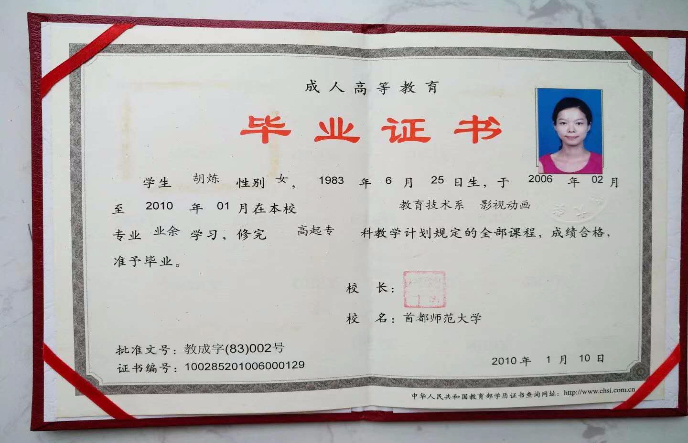 成人高等教育
毕业证书
学生 胡炼 性别 女, 1983 年 6 月 25 日生, 于 2006 年 02 月
至 2010 年 01 月在本校 教育技术系 影视动画
专业 业余 学习, 修完 高起专 科教学计划规定的全部课程, 成绩合格,
准予毕业。
校 长:
校 名: 首都师范大学
批准文号: 教成字(83)002号
证书编号: 100285201006000129
2010 年 1 月 10 日
中华人民共和国教育部学历证书查询网址: http://www.chsi.com.cn